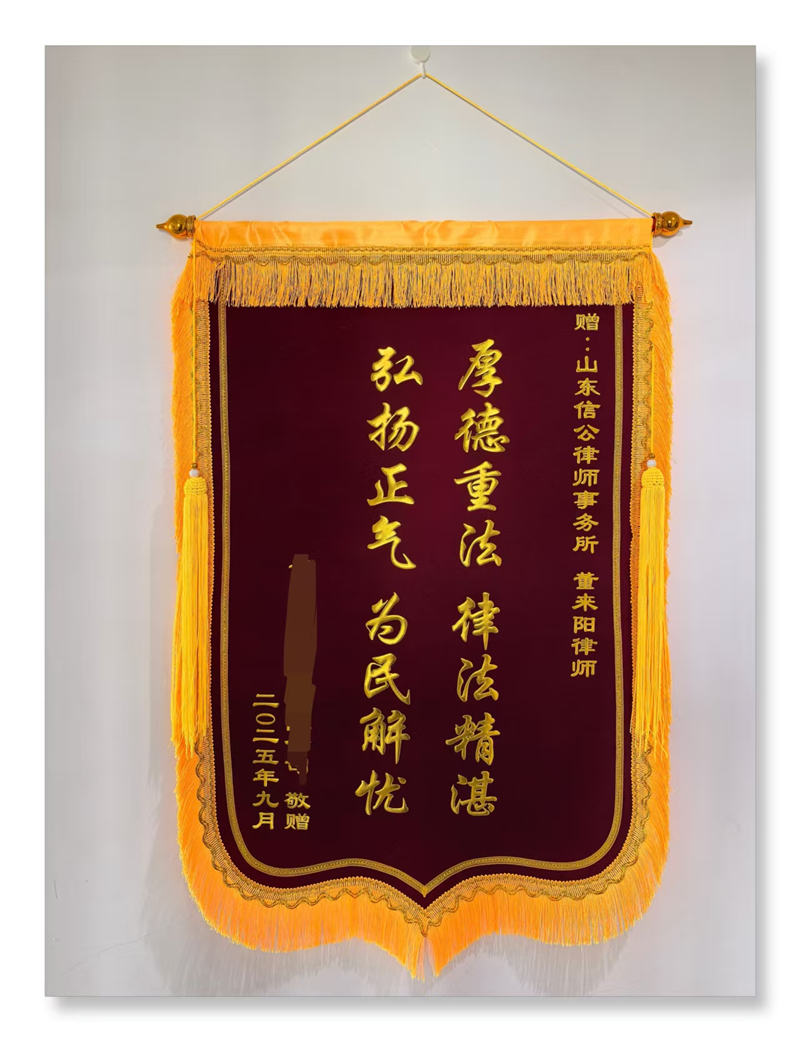 赠：山东信公律师事务所 董来阳律师
厚德重法 律法精湛
弘扬正气 为民解忧
敬赠
二〇二五年九月